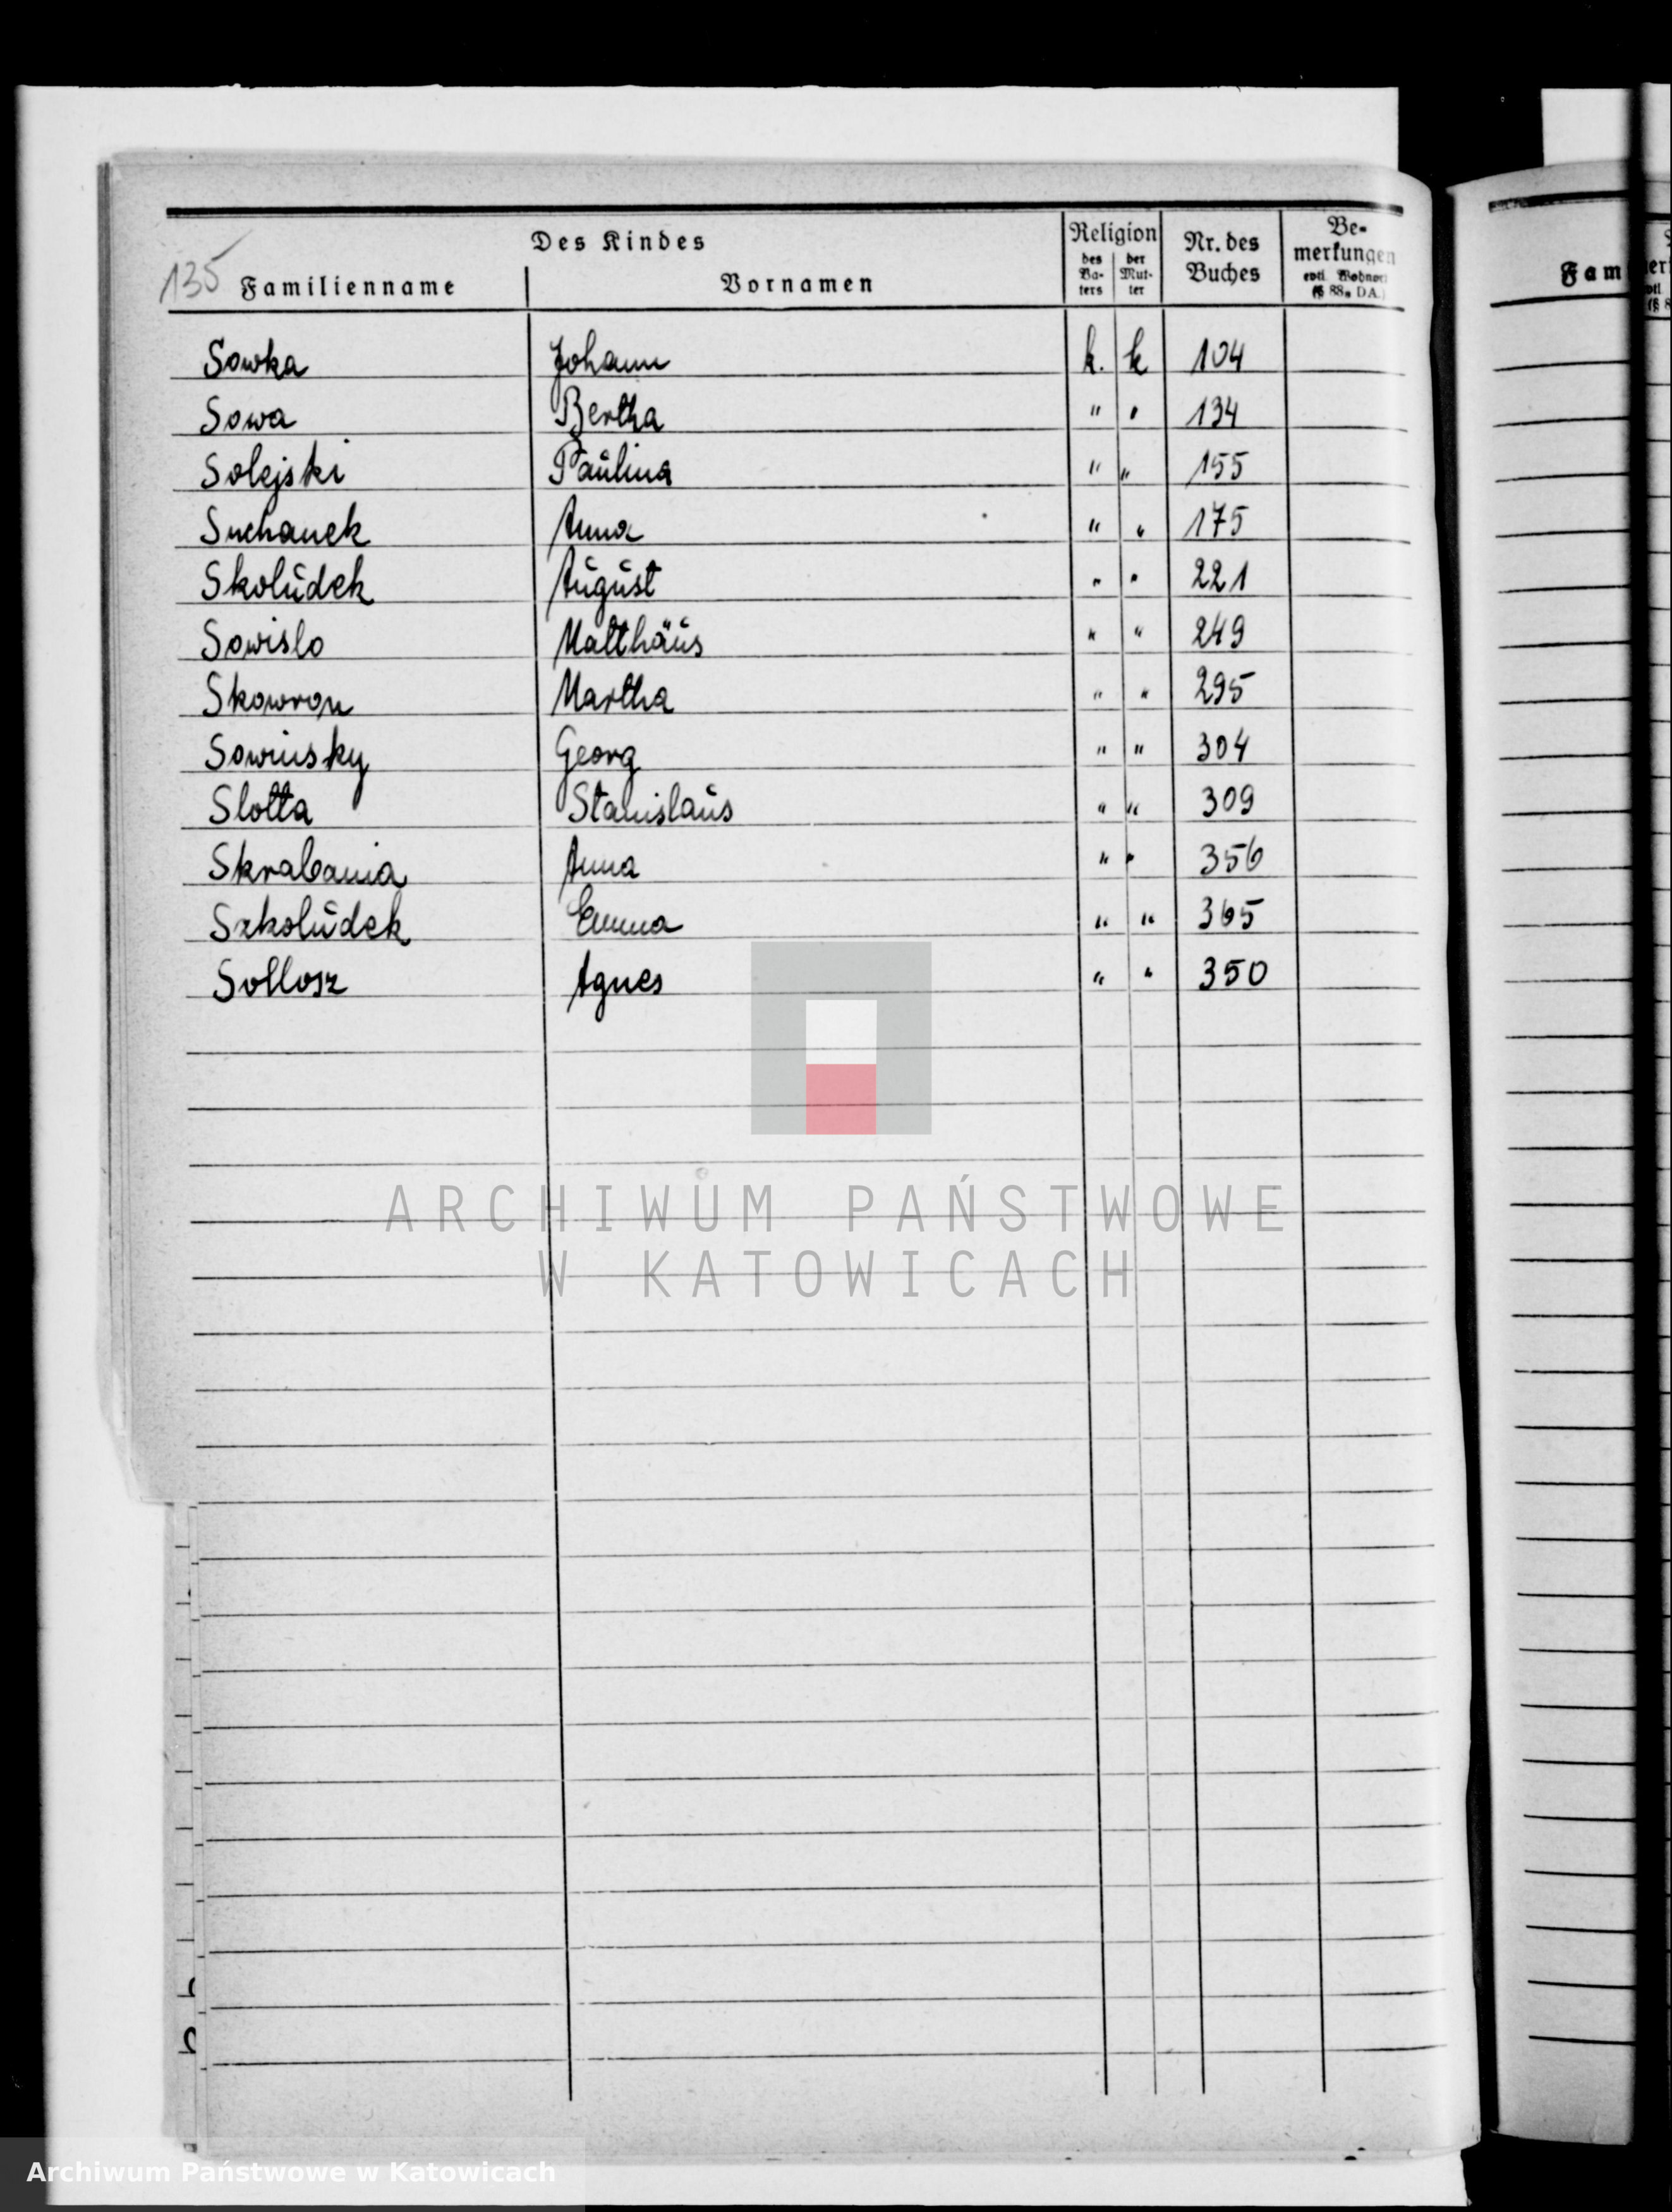 Des Kindes
Religion
Nr. des Buches
Be-
merkungen
evtl. Wohnort
(§ 88a DA.)
des Va-ters
der Mut-ter
135 Familienname Vornamen
Fam
Sowka Johann k. k 104
Sowa Bertha " " 134
Solejski Paulina " " 155
Suchanek Anna " " 175
Skolŭdek Aŭgŭst " " 221
Sowislo Matthäŭs " " 249
Skowron Martha " " 295
Sowinsky Georg " " 304
Slotta Stanislaŭs " " 309
Skrabania Anna " " 356
Szkolŭdek Emma " " 365
Sollosz Agnes " " 350
ARCHIWUM PAŃSTWOWE
W KATOWICACH
Archiwum Państwowe w Katowicach